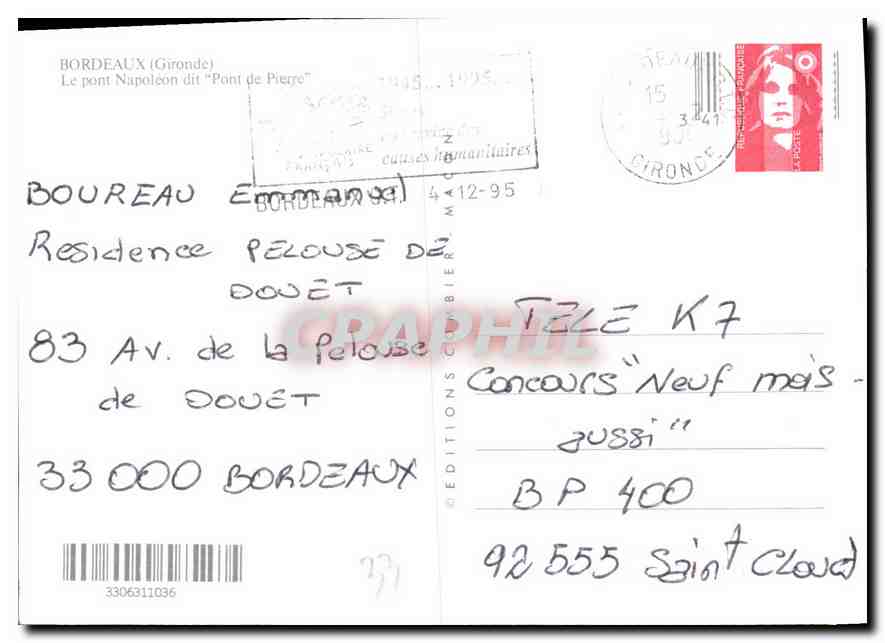 BORDEAUX (Gironde)
Le pont Napoléon dit "Pont de Pierre"
1945...1995...
causes humanitaires
FRANÇAIS
BORDEAUX 4-12-95
15
3 41
GIRONDE
REPUBLIQUE FRANÇAISE
LA POSTE
BOUREAU Emmanuel
Residence PELOUSE DE
DOUET
83 Av. de la Pelouse
de DOUET
33 000 BORDEAUX
3306311036
33
© EDITIONS COMBIER - MACON
CPAPHIL
TELE K7
Concours "Neuf mois -
aussi"
BP 400
92 555 Saint Cloud